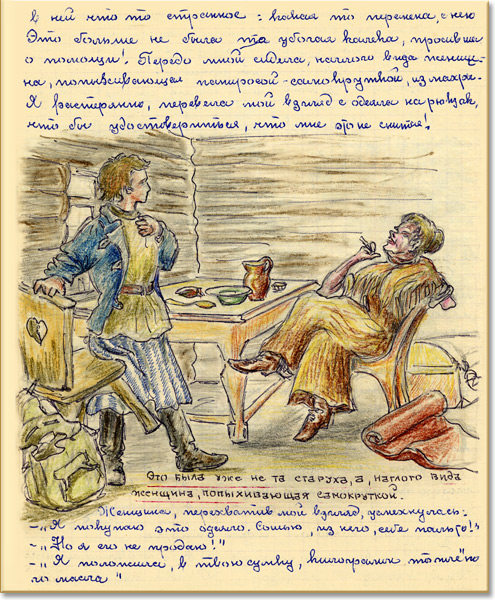 в ней что то странное: какая то перемена, с нею
Это больше не была та убогая калека, просивша
о помощи! Передо мной сидела, наглого вида женщи-
на, попыхивающая папиросой-самокруткой, из махры.
Я растерянно, перевела мой взгляд с одеяла на рюкзак,
что бы удостовериться, что мне это не снится!
Это была уже не та старуха, а, наглого вида
женщина, попыхивающая самокруткой.
Женщина, перехватив мой взгляд, усмехнулась:
-„Я покупаю это одеяло. Сошью, из него, себе пальто!"
-„Но я его не продаю!"
-„Я положила, в твою сумку, килограмм топлёно
го масла"